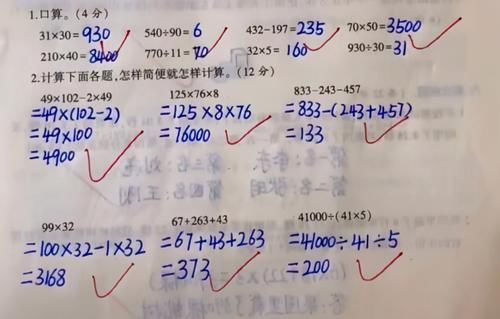 1.口算。(4 分)
31×30=930 540÷90=6 432-197=235 70×50=3500
210×40=8400 770÷11=70 32×5=160 930÷30=31
2.计算下面各题,怎样简便就怎样计算。(12 分)
49×102-2×49 125×76×8 833-243-457
=49×(102-2) =125×8×76 =833-(243+457)
=49×100 =76000 =133
=4900
99×32 67+263+43 41000÷(41×5)
=100×32-1×32 =67+43+263 =41000÷41÷5
=3168 =373 =200